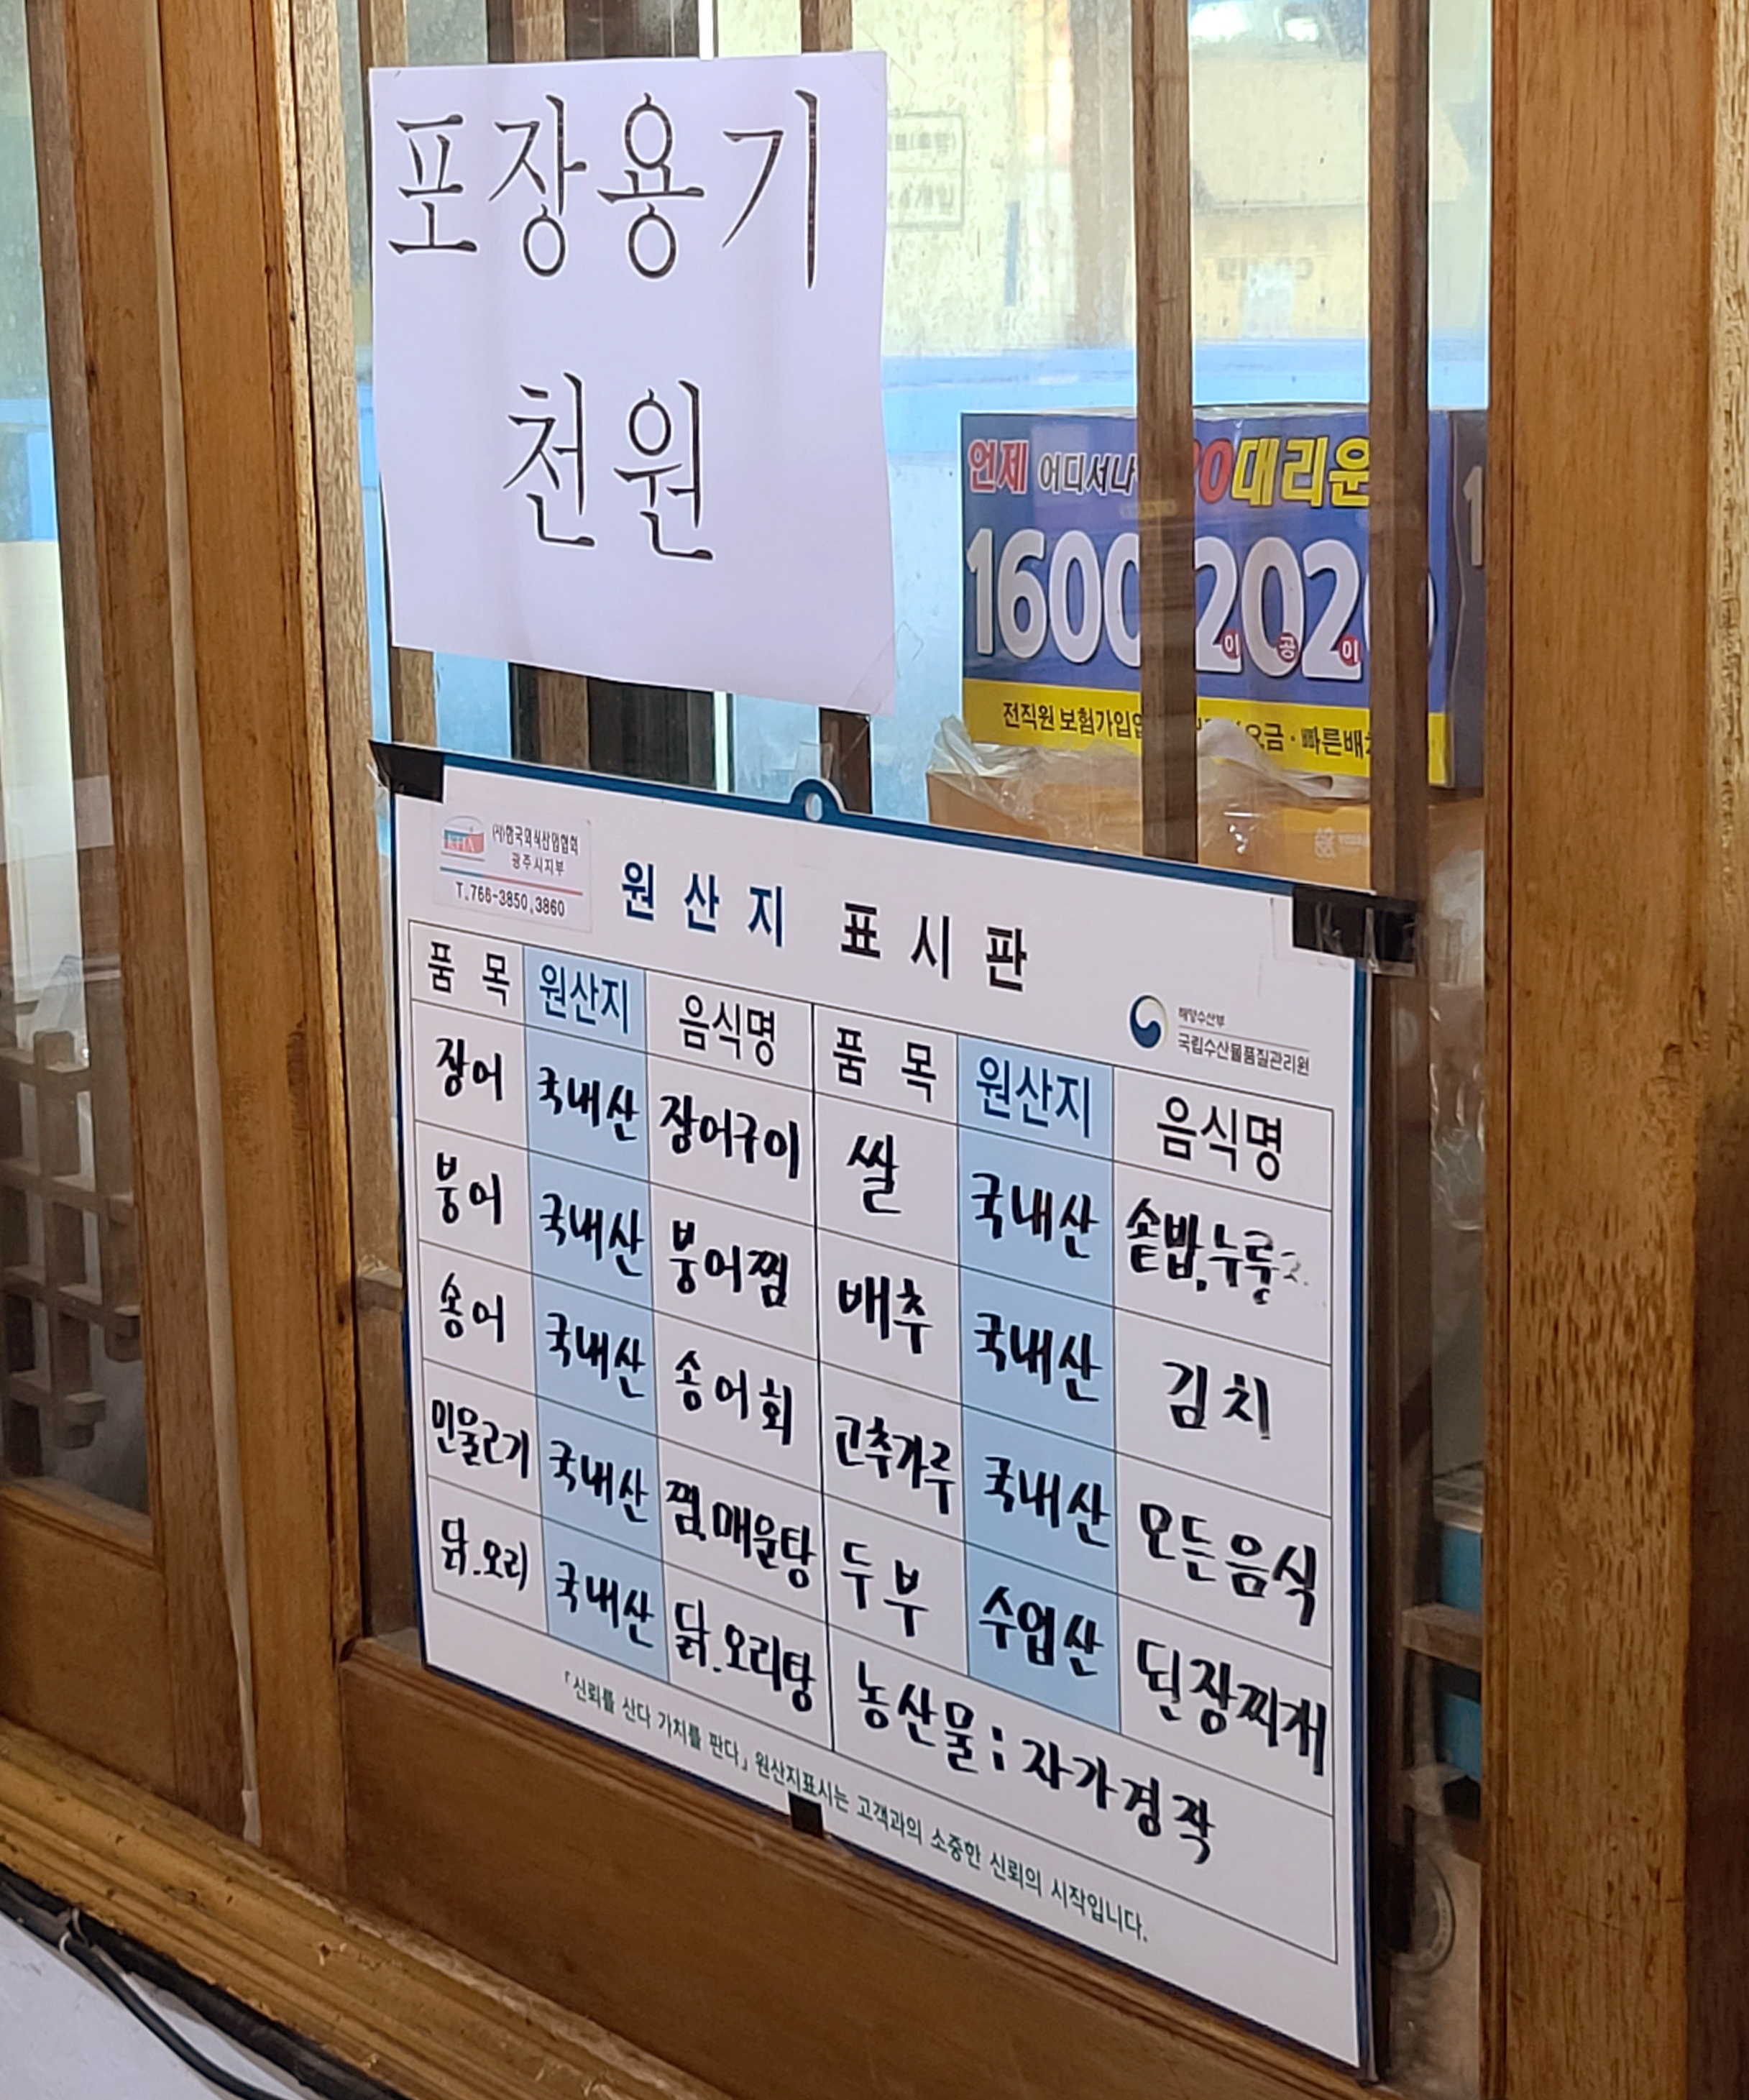 포장용기
천원
언제 어디서나 대리운
1600 202
이 공 이
전직원 보험가입
요금·빠른배
(사)한국외식산업협회
광주시지부
T.766-3850,3860
원산지 표시판
해양수산부
국립수산물품질관리원
품목 원산지 음식명 품목 원산지 음식명
장어 국내산 장어구이 쌀 국내산 솥밥.누룽
붕어 국내산 붕어찜 배추 국내산 김치
송어 국내산 송어회 고추가루 국내산 모든음식
민물고기 국내산 찜.매운탕 두부 수입산 된장찌개
닭.오리 국내산 닭.오리탕 농산물:자가경작
「신뢰를 산다 가치를 판다」 원산지표시는 고객과의 소중한 신뢰의 시작입니다.